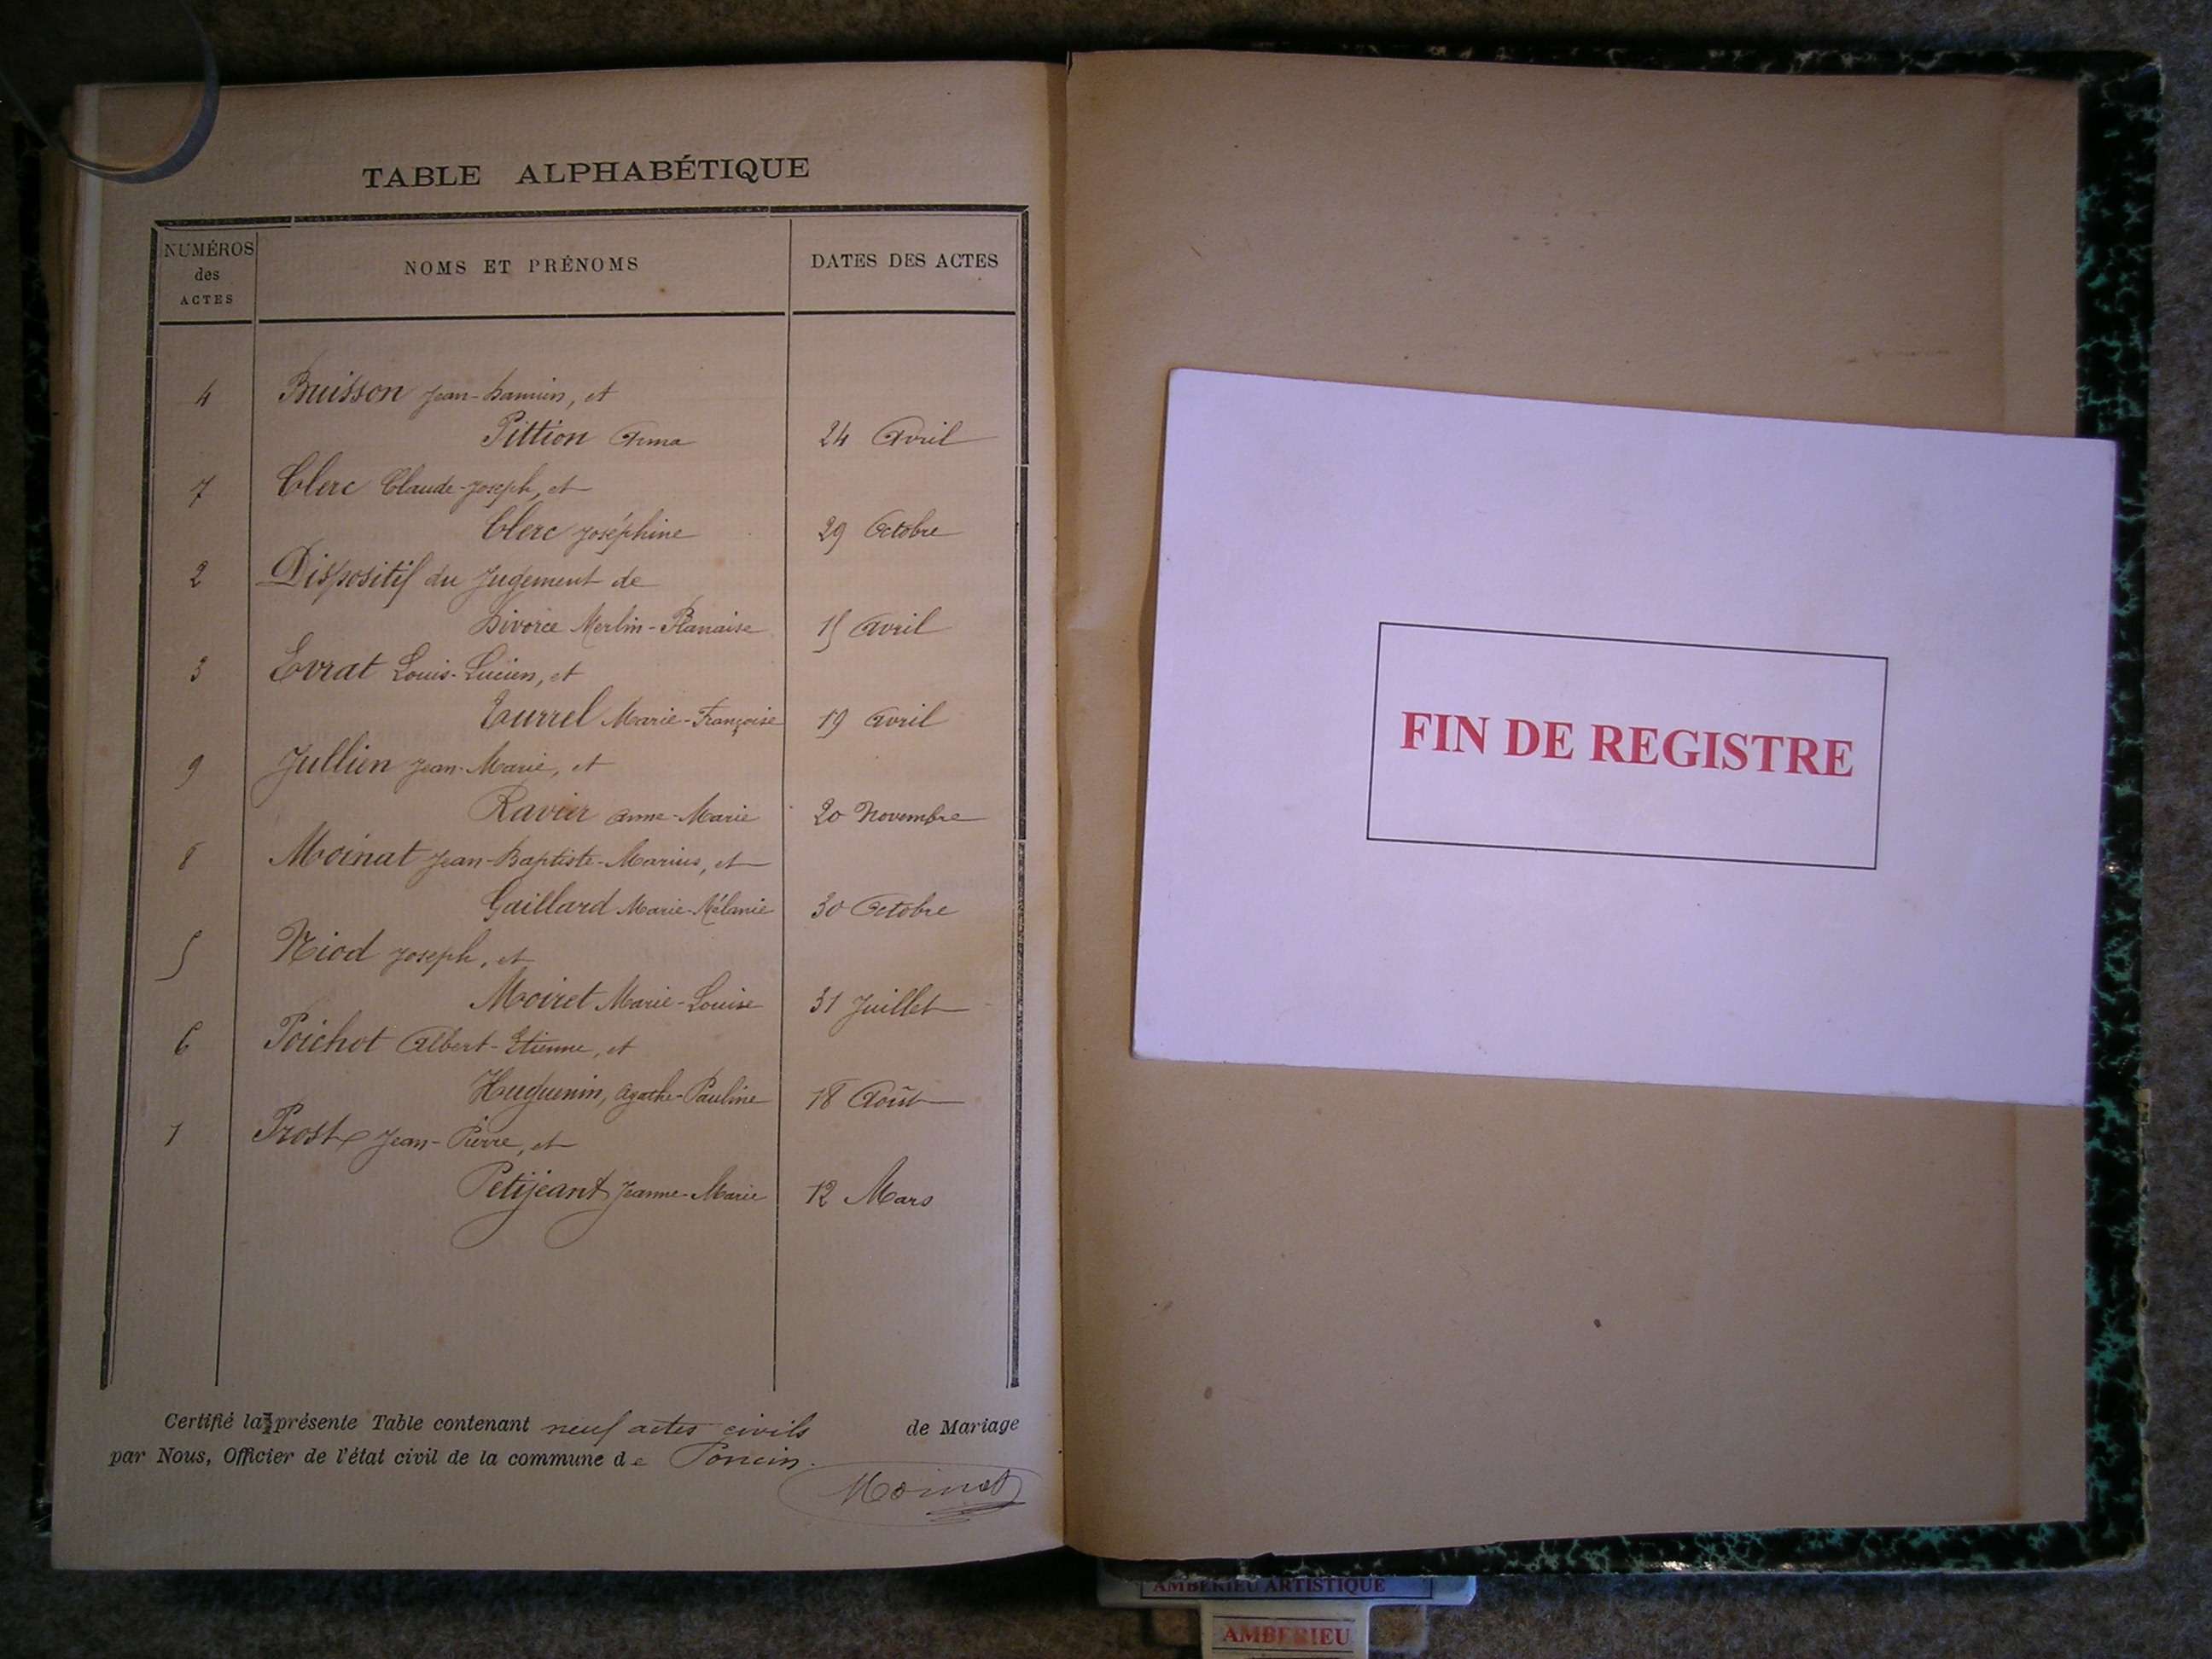 TABLE ALPHABÉTIQUE
NUMÉROS
des
ACTES
NOMS ET PRÉNOMS
DATES DES ACTES
4 Buisson Jean-Damien, et
Pittion Irma 24 Avril
7 Clerc Claude-Joseph, et
Clerc Joséphine 29 Octobre
2 Dispositif du Jugement de
Divorce Merlin-Planaise 15 Avril
3 Evrat Louis-Lucien, et
Turrel Marie-Françoise 19 Avril
9 Jullien Jean-Marie, et
Ravier Anne-Marie 20 Novembre
8 Moinat Jean-Baptiste-Marius, et
Gaillard Marie-Mélanie 30 Octobre
5 Niod Joseph, et
Moiret Marie-Louise 31 Juillet
6 Poichot Albert-Etienne, et
Huguenin, Agathe-Pauline 18 Août
1 Prost Jean-Pierre, et
Petijeant Jeanne-Marie 12 Mars
Certifié la présente Table contenant neuf actes civils de Mariage
par Nous, Officier de l'état civil de la commune de Poncin.
Moinat
FIN DE REGISTRE
AMBERIEU ARTISTIQUE
AMBERIEU